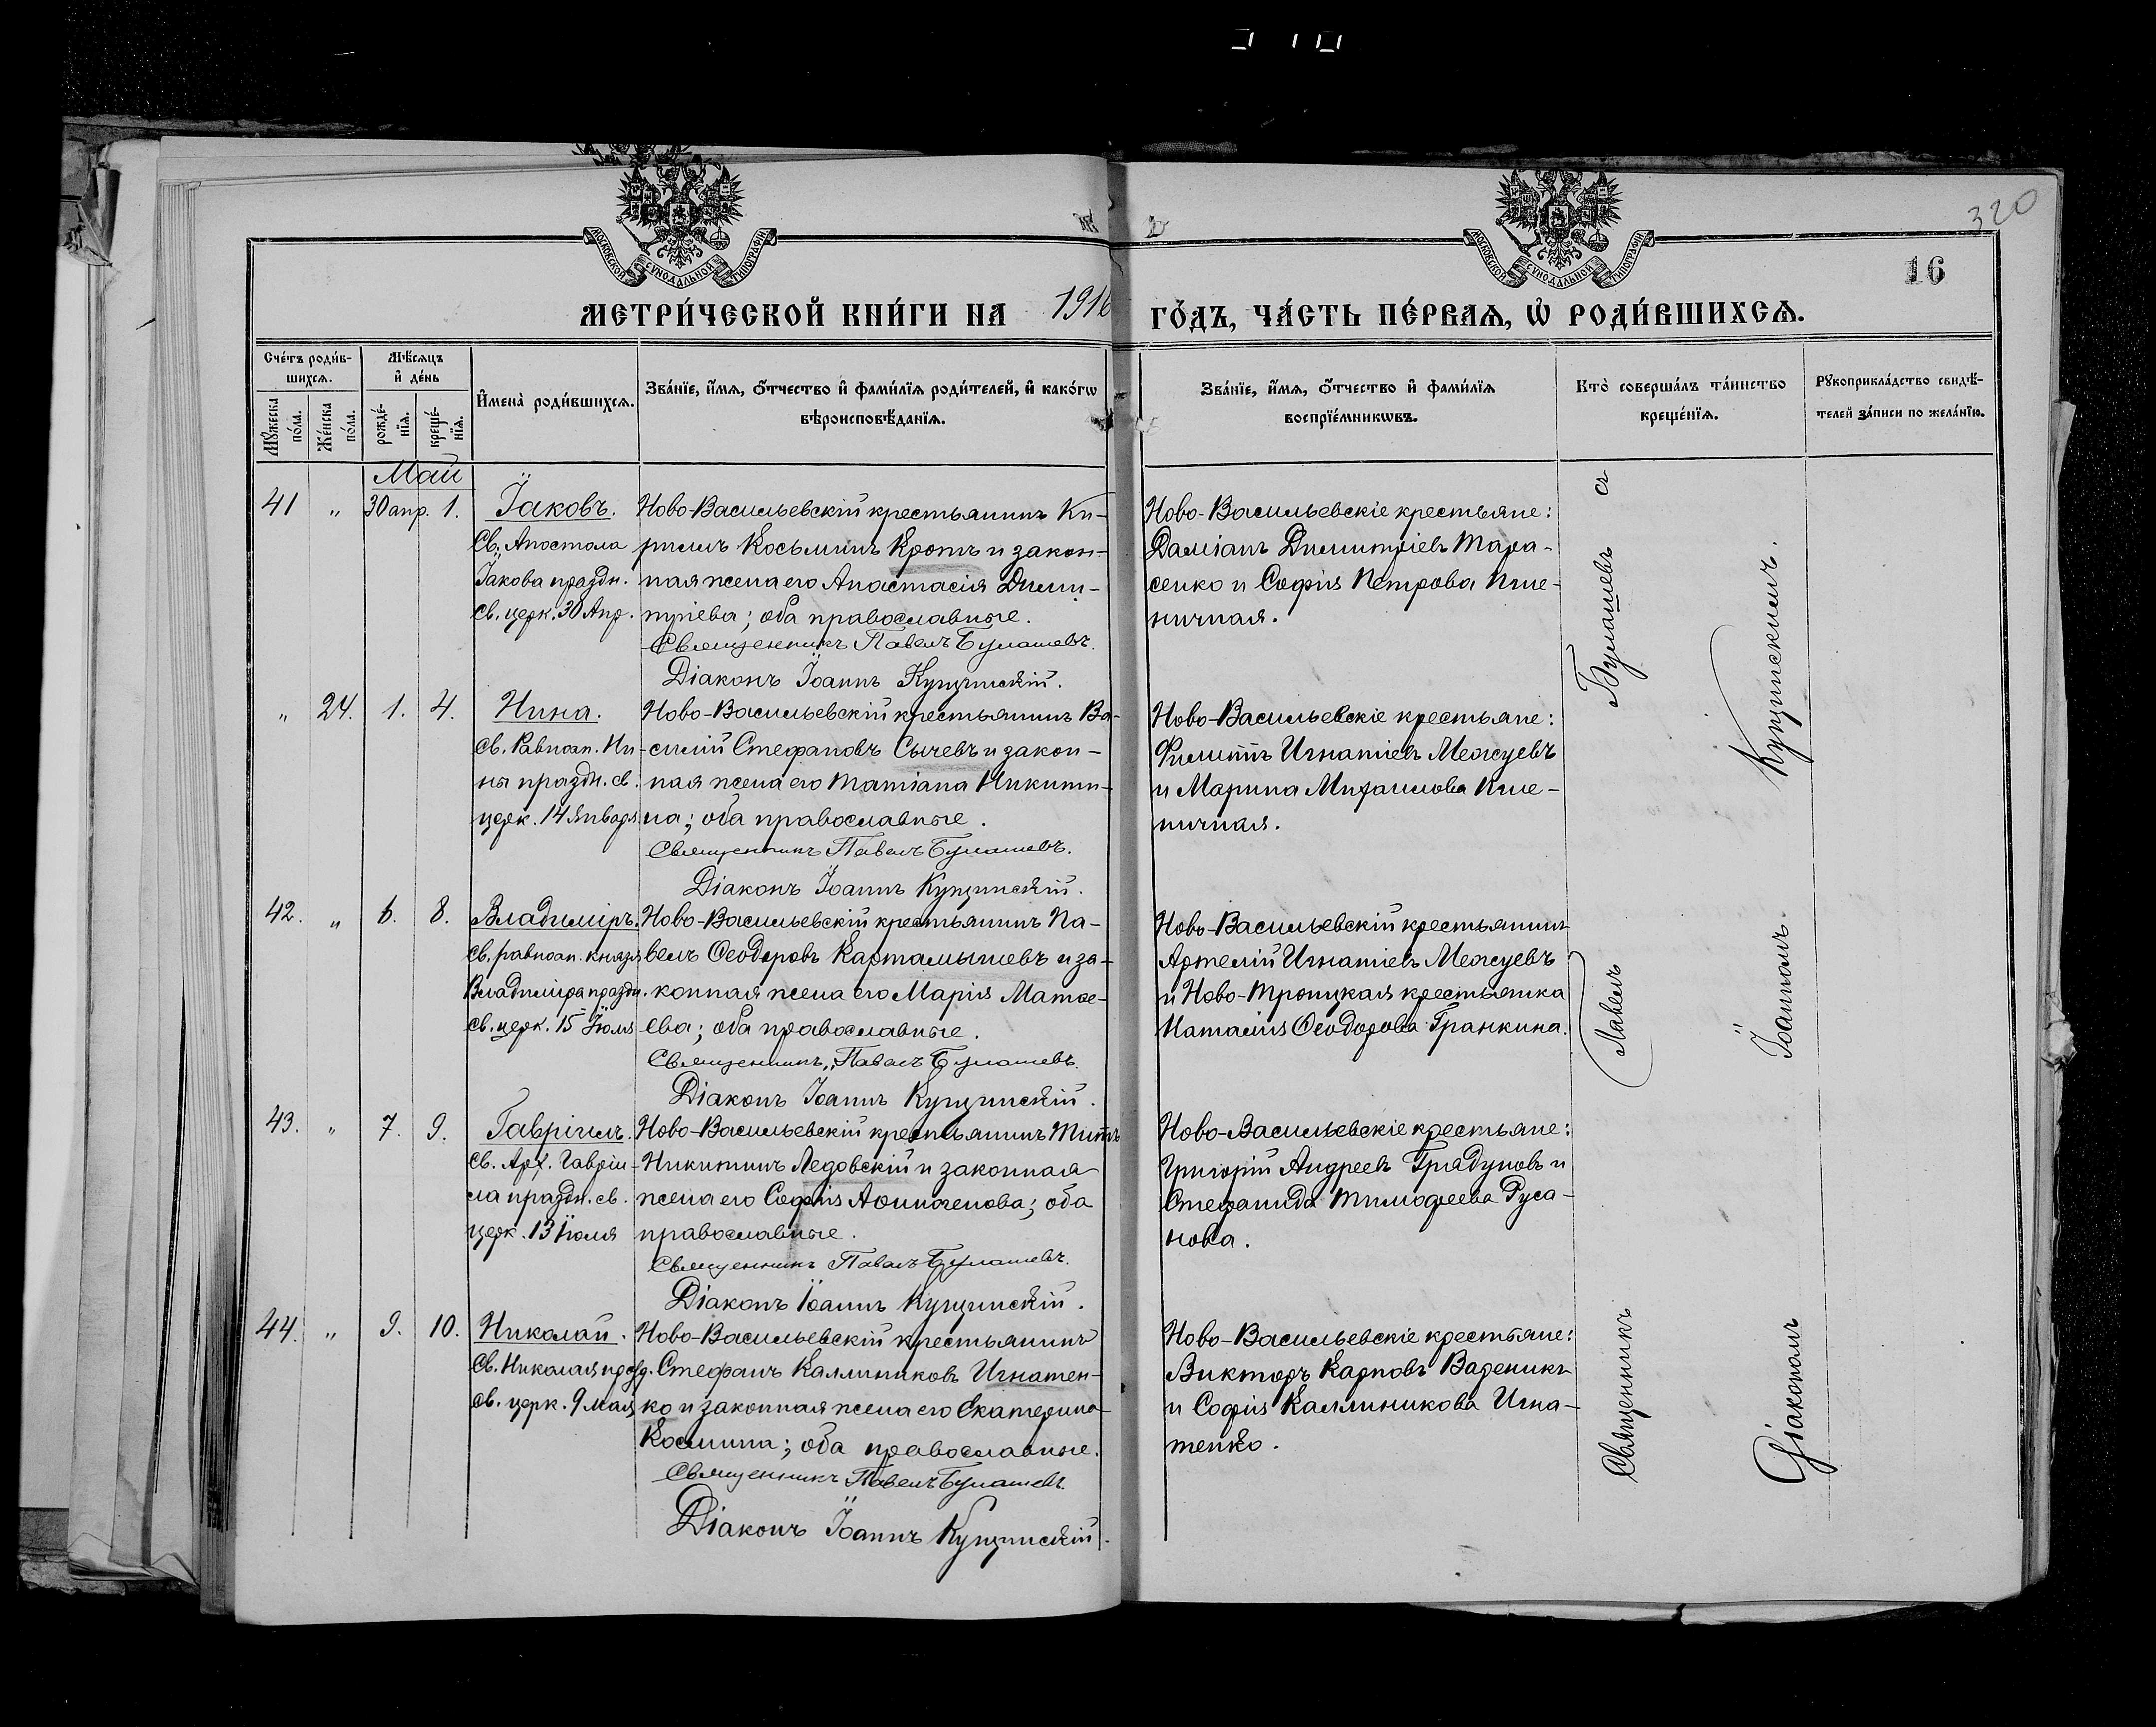 320
16
МОСКОВСКОЙ СѴНОДАЛЬНОЙ ТИПОГРАФІИ
МОСКОВСКОЙ СѴНОДАЛЬНОЙ ТИПОГРАФІИ
МЕТРИ́ЧЕСКОЙ КНИ́ГИ НА 1916 ГО́ДЪ, ЧА́СТЬ ПЕ́РВАѦ, Ѡ РОДИ́ВШИХСѦ.
Сче́тъ роди́в-
шихсѧ.
Мꙋ́жеска по́ла.
Же́нска по́ла.
Мѣ́сѧцъ
и҆ де́нь
рожде́-
нїѧ.
креще́-
нїѧ.
И҆мена̀ роди́вшихсѧ.
Зва́нїе, и҆́мѧ, ѻ҆́тчество и҆ фами́лїѧ роди́телей, и҆ како́гѡ
вѣроисповѣ́данїѧ.
Зва́нїе, и҆́мѧ, ѻ҆́тчество и҆ фами́лїѧ
воспрїе́мникѡвъ.
Кто̀ соверша́лъ та́инство
креще́нїѧ.
Рꙋкоприкла́дство свидѣ́-
телей за́писи по жела́нїю.
Май
41 " 30 апр. 1. Їаковъ.
Св. Апостола
Їакова праздн.
св. церк. 30 Апр.
Ново-Васильевскій крестьянинъ Ки-
риллъ Косьминъ Кротъ и закон-
ная жена его Анастасія Дими-
тріева; оба православные.
Священникъ Павелъ Булашевъ.
Діаконъ Їоаннъ Купчинскій.
Ново-Васильевскіе крестьяне:
Даміанъ Димитріевъ Тара-
сенко и Софія Петрова Пше-
ничная.
" 24. 1. 4. Нина.
Св. Равноап. Ни-
ны праздн. св.
церк. 14 Января
Ново-Васильевскій крестьянинъ Ва-
силій Стефановъ Сычевъ и закон-
ная жена его Татіана Никити-
на; оба православные.
Священникъ Павелъ Булашевъ.
Діаконъ Їоаннъ Купчинскій.
Ново-Васильевскіе крестьяне:
Филиппъ Игнатіевъ Межуевъ
и Марина Михаилова Пше-
ничная.
42. " 6. 8. Владиміръ.
Св. равноап. князя
Владиміра праздн.
св. церк. 15 Їюля
Ново-Васильевскій крестьянинъ Па-
велъ Ѳеодоровъ Картамышевъ и за-
конная жена его Марія Матѳе-
ева; оба православные.
Священникъ Павелъ Булашевъ.
Діаконъ Їоаннъ Купчинскій.
Ново-Васильевскій крестьянинъ
Артемій Игнатіевъ Межуевъ
и Ново-Троицкая крестьянка
Наталія Ѳеодорова Гранкина.
43. " 7. 9. Гавріилъ.
Св. Арх. Гавріи-
ла праздн. св.
церк. 13 Їюля
Ново-Васильевскій крестьянинъ Титъ
Никитинъ Ледовскій и законная
жена его Софія Аѳиногенова; оба
православные.
Священникъ Павелъ Булашевъ.
Діаконъ Їоаннъ Купчинскій.
Ново-Васильевскіе крестьяне:
Григорій Андреевъ Градуновъ и
Стефанида Тимофеева Руса-
нова.
44. " 9. 10. Николай.
Св. Николая празд.
св. церк. 9 Мая
Ново-Васильевскій крестьянинъ
Стефанъ Каллиниковъ Игнатен-
ко и законная жена его Екатерина
Космина; оба православные.
Священникъ Павелъ Булашевъ.
Діаконъ Їоаннъ Купчинскій.
Ново-Васильевскіе крестьяне:
Викторъ Карповъ Вареникъ
и Софія Каллиникова Игна-
тенко.
Священникъ Павелъ Булашевъ съ
Діакономъ Їоанномъ Купчинскимъ.